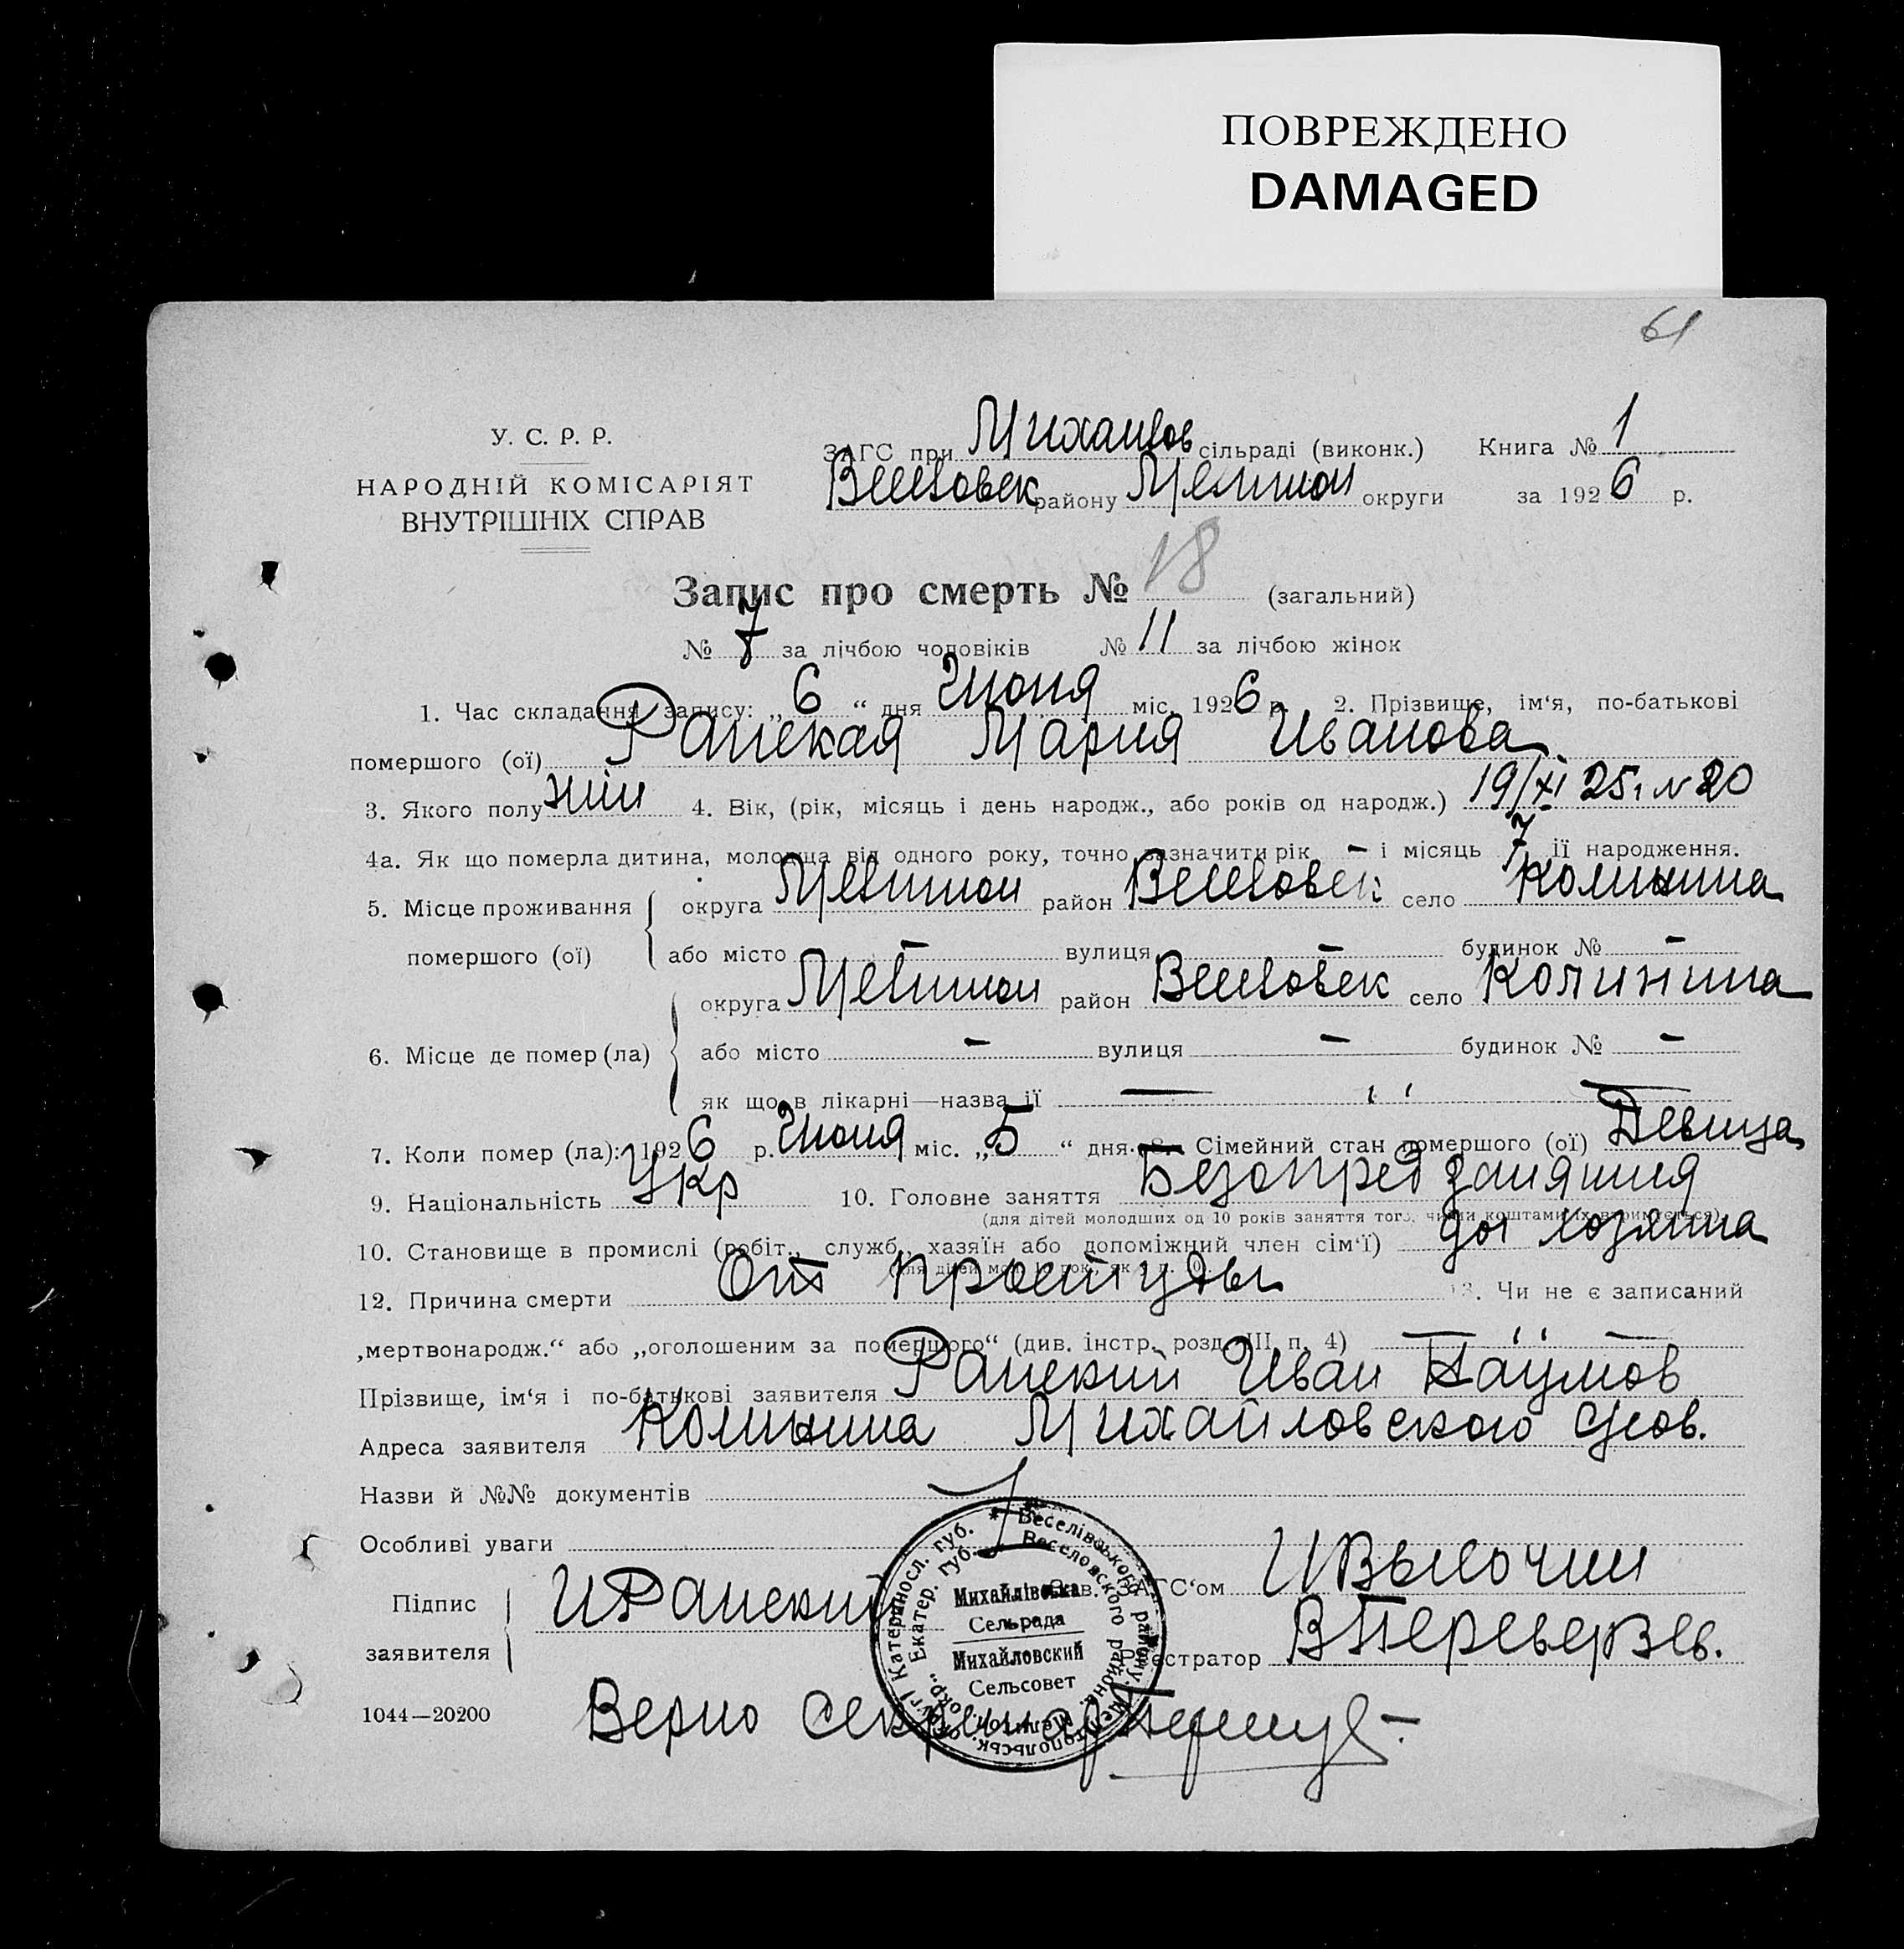 ПОВРЕЖДЕНО
DAMAGED
61
У. С. Р. Р.
НАРОДНІЙ КОМІСАРІЯТ
ВНУТРІШНІХ СПРАВ
ЗАГС при Михайлов сільраді (виконк.) Книга № 1
Веселовск району Мелитоп округи за 1926 р.
Запис про смерть № 18 (загальний)
№ 7 за лічбою чоловіків № 11 за лічбою жінок
1. Час складання запису: „ 6 “ дня Июня міс. 1926 р. 2. Прізвище, ім‘я, по-батькові
помершого (ої) Рапская Мария Иванова
3. Якого полу жін 4. Вік, (рік, місяць і день народж., або років од народж.) 19/XI 25 г № 20
4а. Як що померла дитина, молодща від одного року, точно зазначити рік – і місяць 7 її народження.
5. Місце проживання округа Мелитоп район Веселовск село Колинина
помершого (ої) або місто – вулиця – будинок № –
округа Мелитоп район Веселовск село Колинина
6. Місце де помер (ла) або місто – вулиця – будинок № –
як що в лікарні—назва її — ʺ —
7. Коли помер (ла): 1926 р. Июня міс. „ 5 “ дня. 8. Сімейний стан помершого (ої) Девица
9. Національність Укр 10. Головне заняття Безопред занятия
(для дітей молодших од 10 років заняття того, чиїми коштами їх втримується)
10. Становище в промислі (робіт., служб., хазяїн або допоміжний член сім‘ї) доч хозяина
12. Причина смерти От простуды 13. Чи не є записаний
„мертвонародж.“ або „оголошеним за помершого“ (див. інстр. розд. III п. 4) — ʺ —
Прізвище, ім‘я і по-батькові заявителя Рапский Иван Наумов
Адреса заявителя Колинина Михайловского с/сов.
Назви й №№ документів
Особливі уваги
Підпис заявителя И Рапский Зав. ЗАГС‘ом И Высочин
Реєстратор В Переверзев.
Михайлівська
Сельрада
Михайловский
Сельсовет
Катериносл. губ. * Веселівського району, Мелітопольськ. округи
Екатер. губ. Веселовского района, Мелитоп. окр.
1044—20200 Верно Секретар